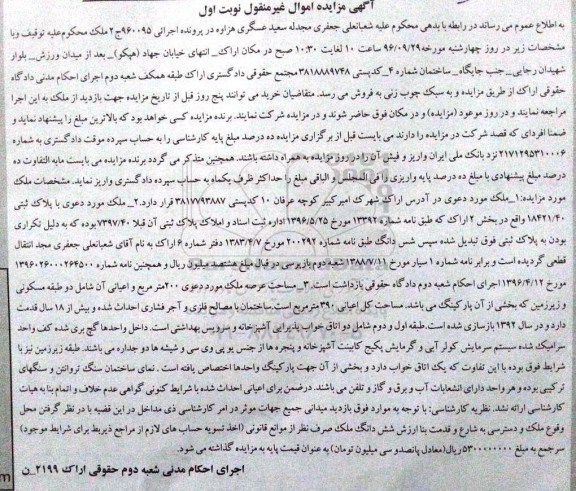 آگهی مزایده اموال غیرمنقول نوبت اول
به اطلاع عموم می رساند در رابطه با بدهی محکوم علیه شعبانعلی جعفری مجدله سعید عسگری هزاوه در پرونده اجرائی ۹۶۰۰۹۵ج۲ ملک محکوم علیه توقیف وبا
مشخصات زیر در روز چهارشنبه مورخه۹۶/۰۹/۲۹ ساعت ۱۰ لغایت ۱۰:۳۰ صبح در مکان اراک_ انتهای خیابان جهاد (هپکو)_ بعد از میدان ورزش_ بلوار
شهیدان رجایی_ جنب جایگاه_ ساختمان شماره ۴_کدپستی ۳۸۱۸۸۸۹۷۴۸ مجتمع حقوقی دادگستری اراک طبقه همکف شعبه دوم اجرای احکام مدنی دادگاه
حقوقی اراک از طریق مزایده و به سبک چوب زنی به فروش می رسد. متقاضیان خرید می توانند پنج روز قبل از تاریخ مزایده جهت بازدید از ملک به این اجرا
مراجعه نمایند و در روز موعود (مزایده) و در مکان فوق حاضر شوند و در مزایده شرکت نمایند. برنده مزایده کسی خواهد بود که بالاترین مبلغ را پیشنهاد نماید و
ضمنا افرادی که قصد شرکت در مزایده را دارند می بایست قبل از برگزاری مزایده ده درصد مبلغ پایه کارشناسی را به حساب سپرده موقت دادگستری به شماره
۲۱۷۱۲۹۵۳۱۰۰۰۶ نزد بانک ملی ایران واریز و فیش آن را در روز مزایده به همراه داشته باشند. همچنین متذکر می گردد برنده مزایده می بایست مابه التفاوت ده
درصد مبلغ پیشنهادی با مبلغ ده درصد پایه واریزی را فی المجلس و الباقی مبلغ را حداکثر ظرف یکماه به حساب سپرده دادگستری واریز نماید. مشخصات ملک
مورد مزایده: ۱_ملک مورد دعوی در آدرس اراک شهرک امیرکبیر کوچه عرفان ۱۰ کدپستی ۳۸۱۷۷۹۳۸۸۷ قرار دارد. ۲_ ملک مورد دعوی با پلاک ثبتی
۱۸۴۲۱/۴۰ واقع در بخش ۲ اراک که طبق نامه شماره ۱۳۳۹۲ مورخ ۱۳۹۶/۵/۲۵ اداره ثبت اسناد و املاک پلاک ثبتی آن قبلا ۷۳۹۷/۴۰ بوده که به دلیل تکراری
بودن به پلاک ثبتی فوق تبدیل شده سپس شش دانگ طبق نامه شماره ۲۰۰۲۹۲ مورخ ۱۳۸۳/۴/۷ دفتر شماره ۶ اراک به نام آقای شعبانعلی جعفری مجد انتقال
قطعی گردیده است و برابر نامه شماره ۱ سیار مورخ ۱۳۸۸/۷/۱۱ شعبه دوم بازپرسی در قبال مبلغ هشتصد میلیون ریال و همچنین نامه شماره ۱۳۹۶۰۲۶۰۰۰۲۶۴۵۰۰
مورخ ۱۳۹۶/۴/۱۲ اجرای احکام شعبه دوم دادگاه حقوقی بازداشت است. ۳_ مساحت عرصه ملک مورد دعوی ۲۰۰متر مربع و اعیانی آن شامل دو طبقه مسکونی
و زیرزمین که بخشی از آن پارکینگ می باشد. مساحت کل اعیانی ۳۹۰مترمربع است. ساختمان با مصالح فلزی و آجر فشاری احداث شده و بیش از ۱۸ سال قدمت
دارد و در سال ۱۳۹۲ بازسازی شده است. طبقه اول و دوم شامل دو اتاق خواب پذیرایی آشپزخانه و سرویس بهداشتی است. داخل واحدها گچ بری شده کف واحد
سرامیک شده سیستم سرمایش کولر آبی و گرمایش پکیج کابینت آشپزخانه و پنجره ها از جنس یو پی وی سی و شیشه ها دو جداره می باشند. طبقه زیرزمین نیز با
شرایط فوق بوده با این تفاوت که یک اتاق خواب دارد و بخشی از آن جهت پارکینگ واحدها اختصاص یافته است. نمای ساختمان سنگ تروانتن و سنگهای
ترکیبی بوده و هر واحد دارای انشعابات آب و برق و گاز و تلفن می باشند. درضمن برای اعیانی احداث شده با شرایط کنونی گواهی عدم خلاف و اتمام بنا به هیات
کارشناسی ارائه نشد. نظریه کارشناسی: با توجه به موارد فوق بازدید میدانی جمیع جهات موثر در امر کارشناسی ذی مداخل در این قضیه با در نظر گرفتن محل
وقوع ملک و دسترسی به شارع و قدمت بنا ارزش شش دانگ ملک صرف نظر از موانع قانونی (اخذ تسویه حساب های لازم از مراجع ذیربط برای شرایط موجود)
سرجمع به مبلغ ۵۳۰۰۰۰۰۰۰۰ ریال(معادل پانصدو سی میلیون تومان) به عنوان قیمت پایه به مزایده گذاشته می شود.
اجرای احکام مدنی شعبه دوم حقوقی اراک ۲۱۹۹_ن